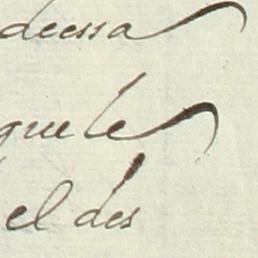 deessa
que le
el des